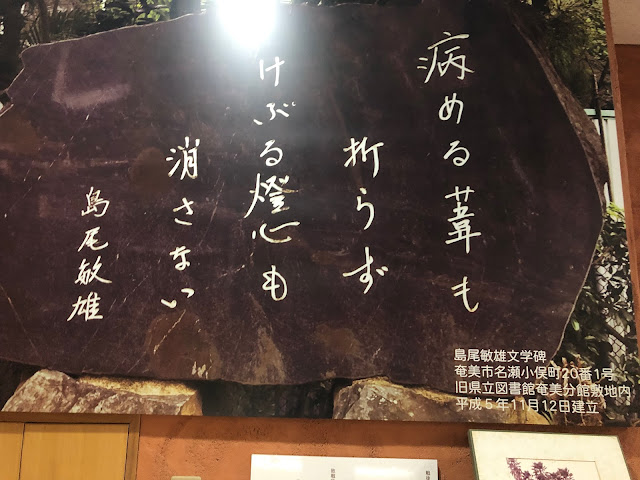 病める葦も
折らず
けぶる燈心も
消さない
島尾敏雄
島尾敏雄文学碑
奄美市名瀬小俣町20番1号
旧県立図書館奄美分館敷地内
平成5年11月12日建立